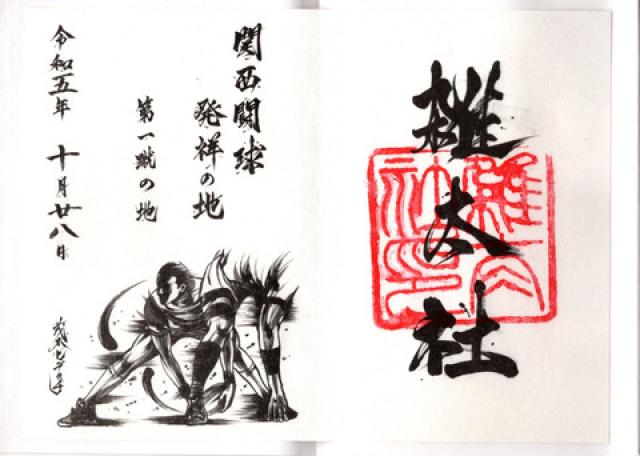 雑太社
関西闘球
発祥の地
第一蹴の地
令和五年 十月廿八日